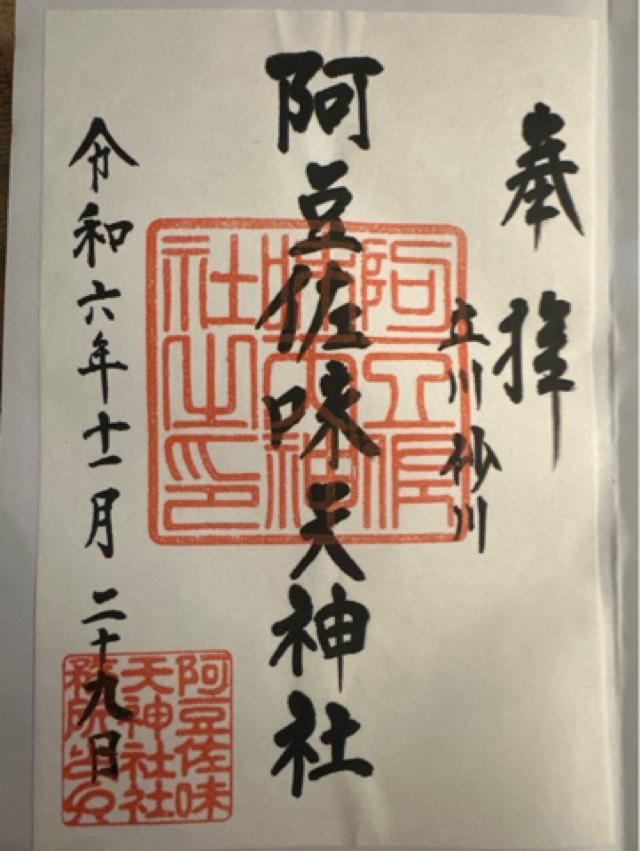 奉拝
立川 砂川
阿豆佐味天神社
令和六年十一月二十九日
阿豆佐味
天神社社
務所之印